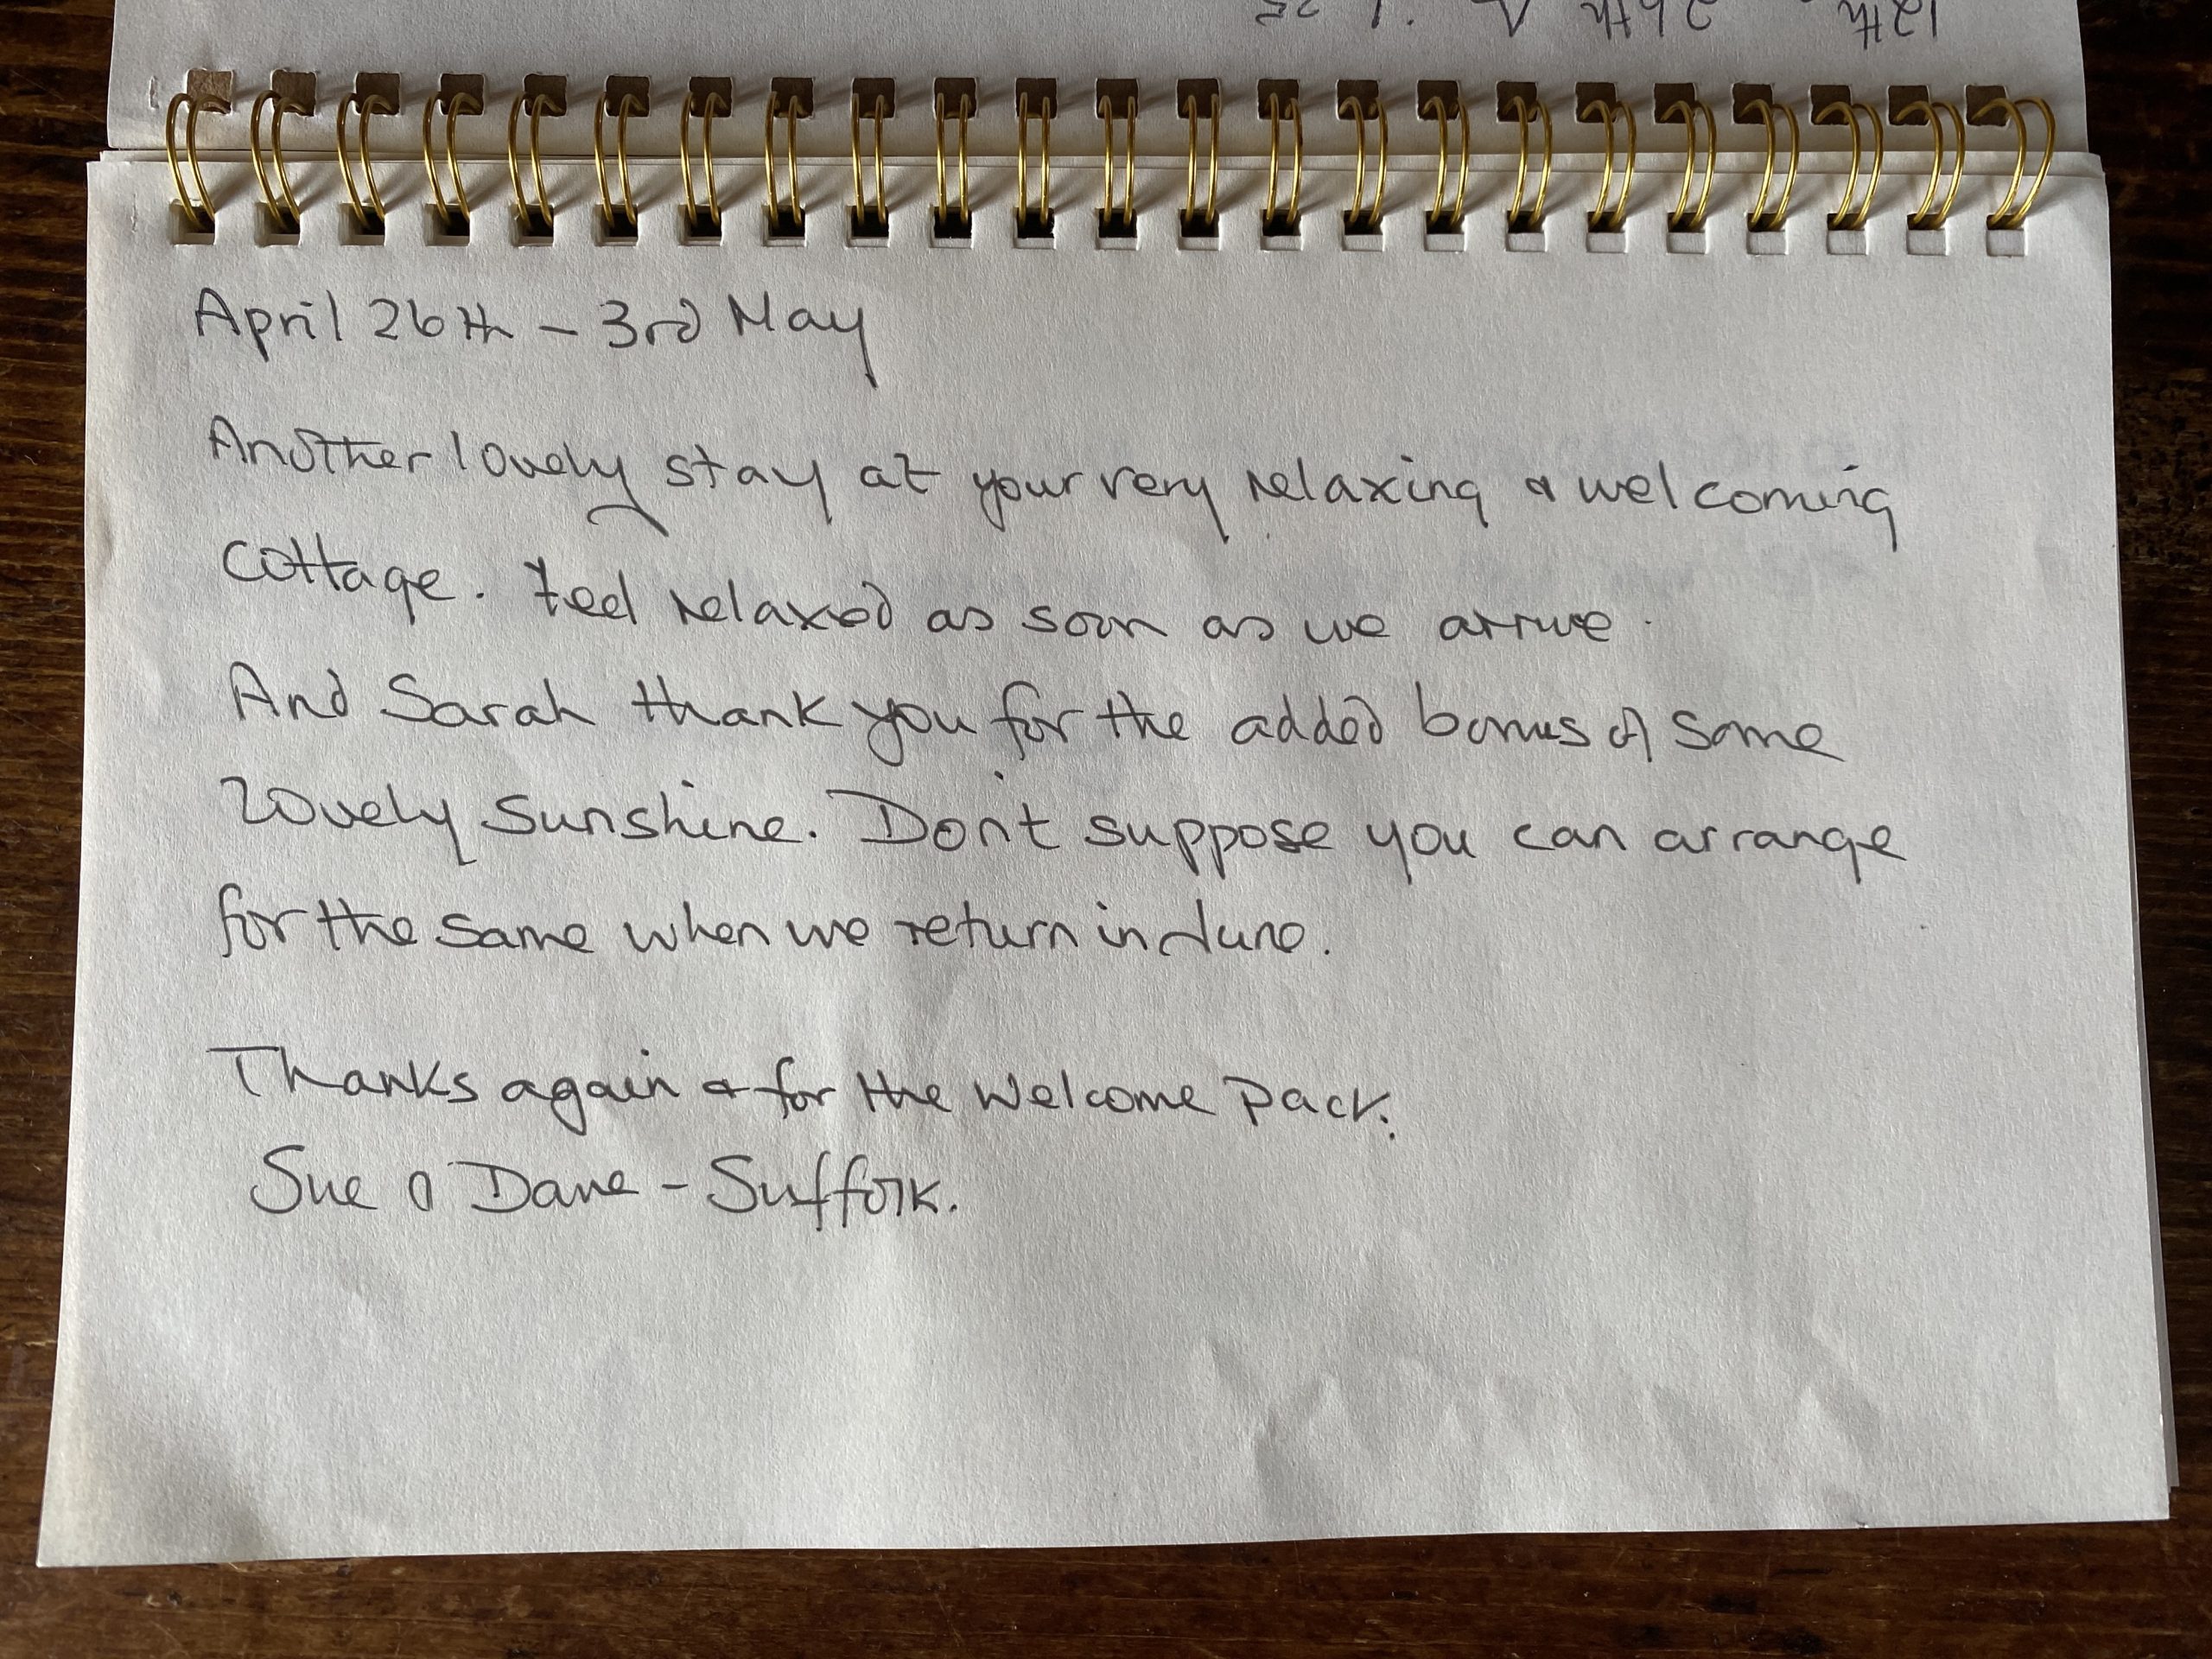 12th 26th
April 26th - 3rd May
Another lovely stay at your very relaxing & welcoming
cottage. Feel relaxed as soon as we arrive.
And Sarah thank you for the added bonus of some
lovely sunshine. Don't suppose you can arrange
for the same when we return in June.
Thanks again & for the Welcome Pack.
Sue & Dave - Suffolk.